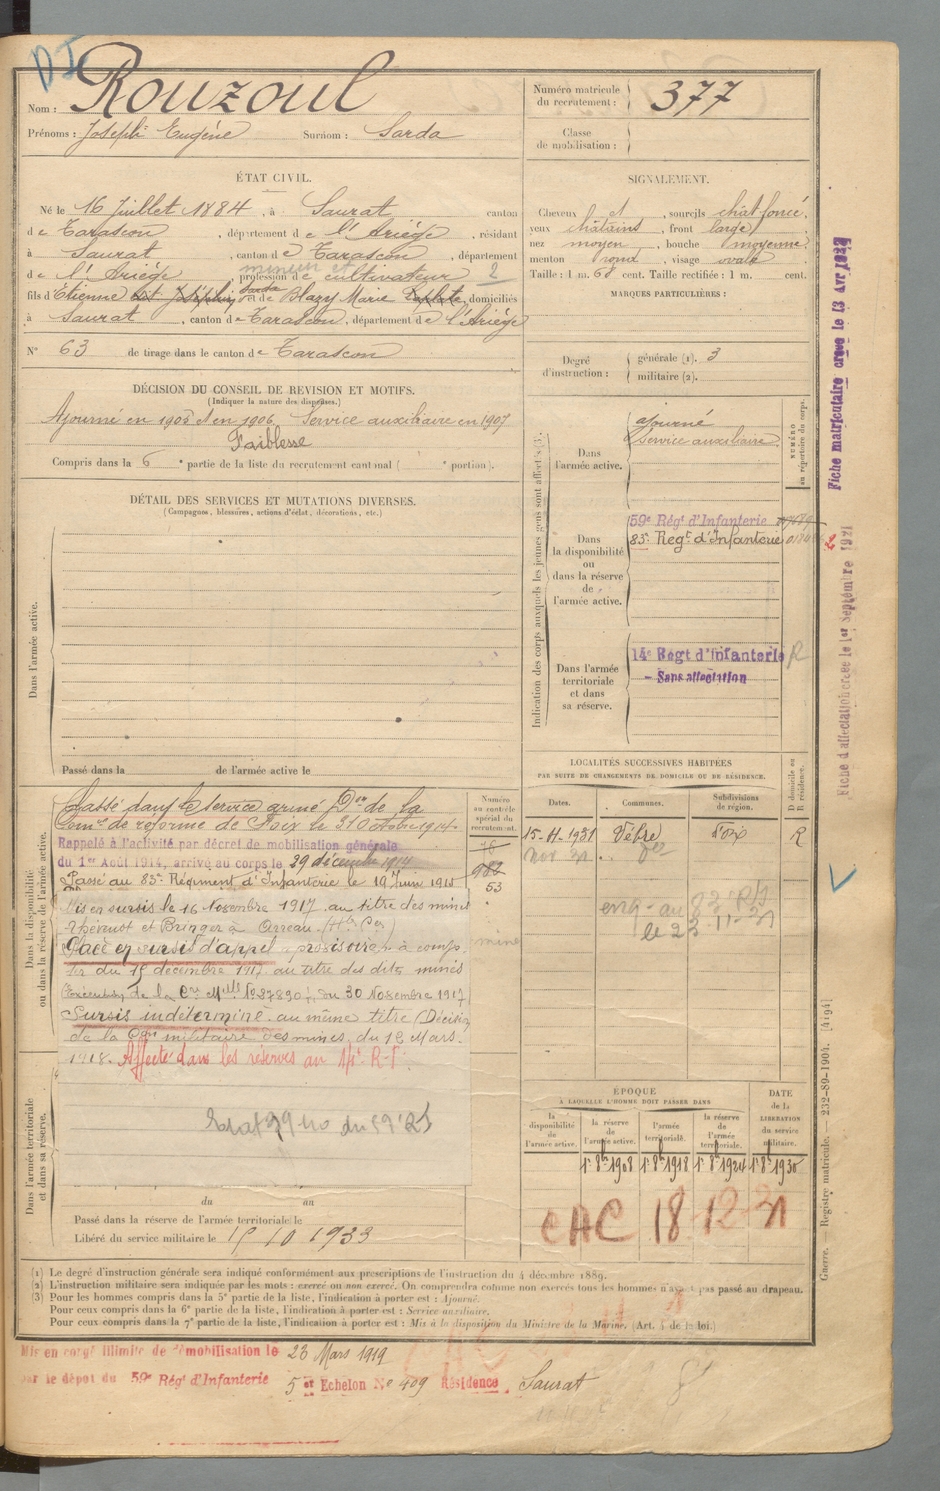 DI
Nom : Rouzoul
Prénoms : Joseph Eugène Surnom : Sarda
Numéro matricule du recrutement : 377
Classe de mobilisation :
ÉTAT CIVIL.
Né le 16 Juillet 1884, à Saurat canton
de Tarascon, département de l'Ariège, résidant
à Saurat, canton de Tarascon, département
de l'Ariège, profession de mineur et cultivateur 2
fils d'Etienne et Joséphin et de Blazy Marie, domiciliés
Sarda
à Saurat, canton de Tarascon, département de l'Ariège
N° 63 de tirage dans le canton de Tarascon
SIGNALEMENT.
Cheveux et, sourcils chat foncé,
yeux chatains, front large,
nez moyen, bouche moyenne
menton rond, visage ovale
Taille : 1 m. 68 cent. Taille rectifiée : 1 m. cent.
MARQUES PARTICULIÈRES :
Degré d'instruction : générale (1). 3
militaire (2).
DÉCISION DU CONSEIL DE REVISION ET MOTIFS.
(Indiquer la nature des dispenses.)
Ajourné en 1905 et en 1906. Service auxiliaire en 1907
Faiblesse
Compris dans la 6e partie de la liste du recrutement cantonal ( e portion).
DÉTAIL DES SERVICES ET MUTATIONS DIVERSES.
(Campagnes, blessures, actions d'éclat, décorations, etc.)
Dans l'armée active.
Passé dans la de l'armée active le
Indication des corps auxquels les jeunes gens sont affectés (3).
Dans l'armée active.
ajourné
Service auxiliaire
NUMÉRO au répertoire du corps.
Dans la disponibilité ou dans la réserve de l'armée active.
59e Régt d'Infanterie
83e Regt d'Infanterie
Dans l'armée territoriale et dans sa réserve.
14e Regt d'Infanterie R
– Sans affectation
Fiche matriculaire créée le 13 Avr
Fiche d'affectation créée le 1er Septembre 1921
2
LOCALITÉS SUCCESSIVES HABITÉES
PAR SUITE DE CHANGEMENTS DE DOMICILE OU DE RÉSIDENCE.
Dates. Communes. Subdivisions de région. D domicile ou R résidence.
15-11-1931 Vèbre Foix R
Nov 31 do
le 23-11-31
Dans la disponibilité ou dans la réserve de l'armée active.
Numéro au contrôle spécial du recrutement.
Classé dans le service armé Don de la
Comon de réforme de Foix le 31 Octobre 1914
Rappelé à l'activité par décret de mobilisation générale
du 1er Août 1914, arrivé au corps le 29 décembre 1914
Passé au 83e Régiment d'Infanterie le 19 Juin 1915
53
Mis en sursis le 16 Novembre 1917 au titre des mines
Thévenot et Bringer à Arreau (Htes Pes)
Placé en sursis d'appel provisoire à comp-
ter du 15 décembre 1917 au titre des dites mines
(Exécution de la Cre Mlle No 27890 du 30 Novembre 1917
Sursis indéterminé au même titre (Décision
de la Con militaire des mines, du 12 Mars
1918. Affecté dans les réserves au 14e R.I.
Dans l'armée territoriale et dans sa réserve.
du au
Passé dans la réserve de l'armée territoriale le
Libéré du service militaire le 15 10 1933
ÉPOQUE
À LAQUELLE L'HOMME DOIT PASSER DANS
la disponibilité de l'armée active. la réserve de l'armée active. l'armée territoriale. la réserve de l'armée territoriale. DATE de la LIBÉRATION du service militaire.
1er 8bre 1908 1er 8bre 1918 1er 8bre 1924 1er 8bre 1930
CAC 18-12-31
(1) Le degré d'instruction générale sera indiqué conformément aux prescriptions de l'instruction du 4 décembre 1889.
(2) L'instruction militaire sera indiquée par les mots : exercé ou non exercé. On comprendra comme non exercés tous les hommes n'ayant pas passé au drapeau.
(3) Pour les hommes compris dans la 5e partie de la liste, l'indication à porter est : Ajourné.
Pour ceux compris dans la 6e partie de la liste, l'indication à porter est : Service auxiliaire.
Pour ceux compris dans la 7e partie de la liste, l'indication à porter est : Mis à la disposition du Ministre de la Marine. (Art. 4 de la loi.)
Guerre. — Registre matricule. — 232-89-1904. [4194]
Mis en congé illimité de démobilisation le 23 Mars 1919
par le dépôt du 59e Régt d'Infanterie 5e Echelon No 409 Résidence Saurat